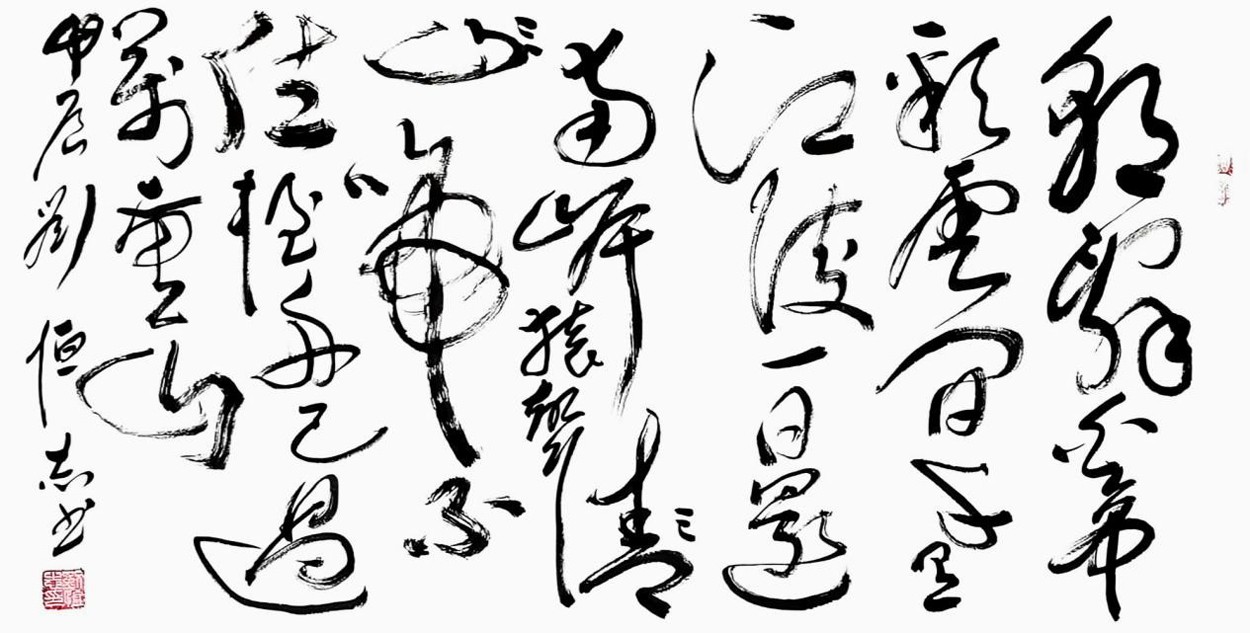 朝辭白帝
彩雲間千里
江陵一日還
兩岸猿聲
啼不
住輕舟已過
萬重山
甲辰劉恒志书